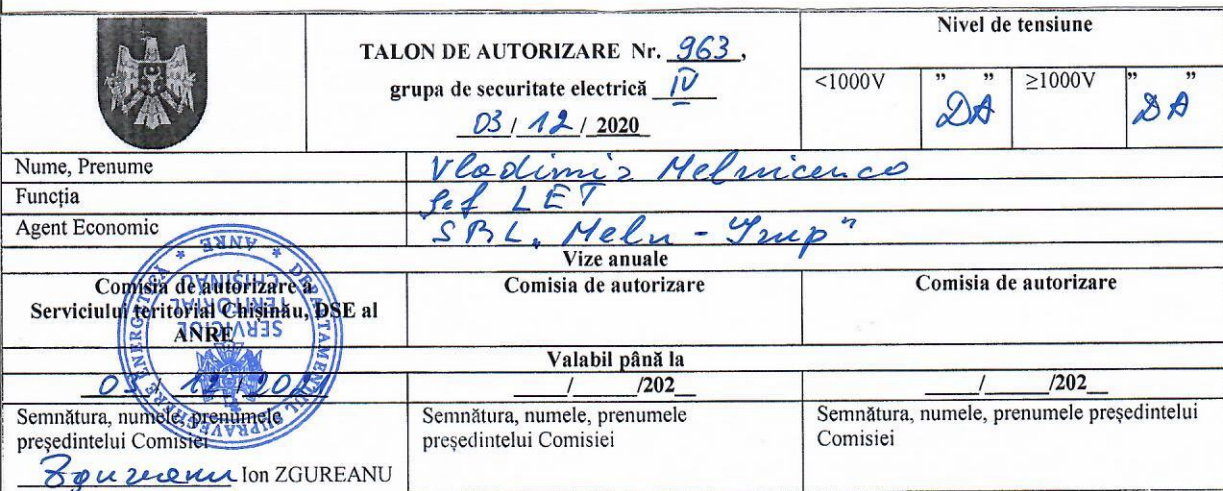 TALON DE AUTORIZARE Nr. 963,
grupa de securitate electrică IV
03 / 12 / 2020
Nivel de tensiune
<1000V " DA " ≥1000V " DA "
Nume, Prenume Vladimir Melnicenco
Funcția Șef LET
Agent Economic SRL „Meln - Grup"
Vize anuale
Comisia de autorizare a
Serviciului teritorial Chișinău, DSE al
ANRE
Comisia de autorizare
Comisia de autorizare
Valabil până la
03 / 12 / 2021
/ /202
/ /202
Semnătura, numele, prenumele
președintelui Comisiei
Zgureanu Ion ZGUREANU
Semnătura, numele, prenumele
președintelui Comisiei
Semnătura, numele, prenumele președintelui
Comisiei
* ANRE * DEPARTAMENTUL SUPRAVEGHERE ENERGETICĂ
SERVICIUL
TERITORIAL
CHIȘINĂU